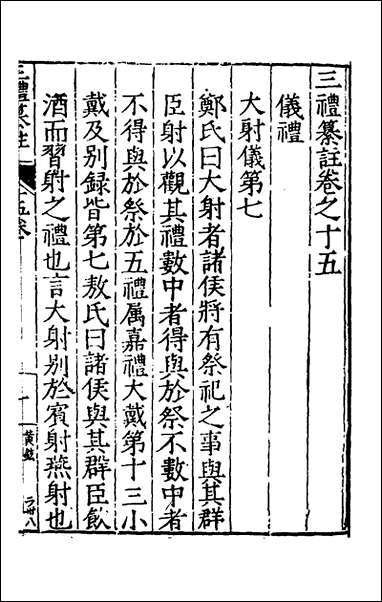 三禮纂註卷之十五
儀禮
大射儀第七
鄭氏曰大射者諸侯將有祭祀之事與其群
臣射以觀其禮數中者得與於祭不數中者
不得與於祭於五禮屬嘉禮大戴第十三小
戴及別録皆第七敖氏曰諸侯與其群臣飲
酒而習射之禮也言大射别於賓射燕射也
三禮纂註
十五卷
一
黃鉞